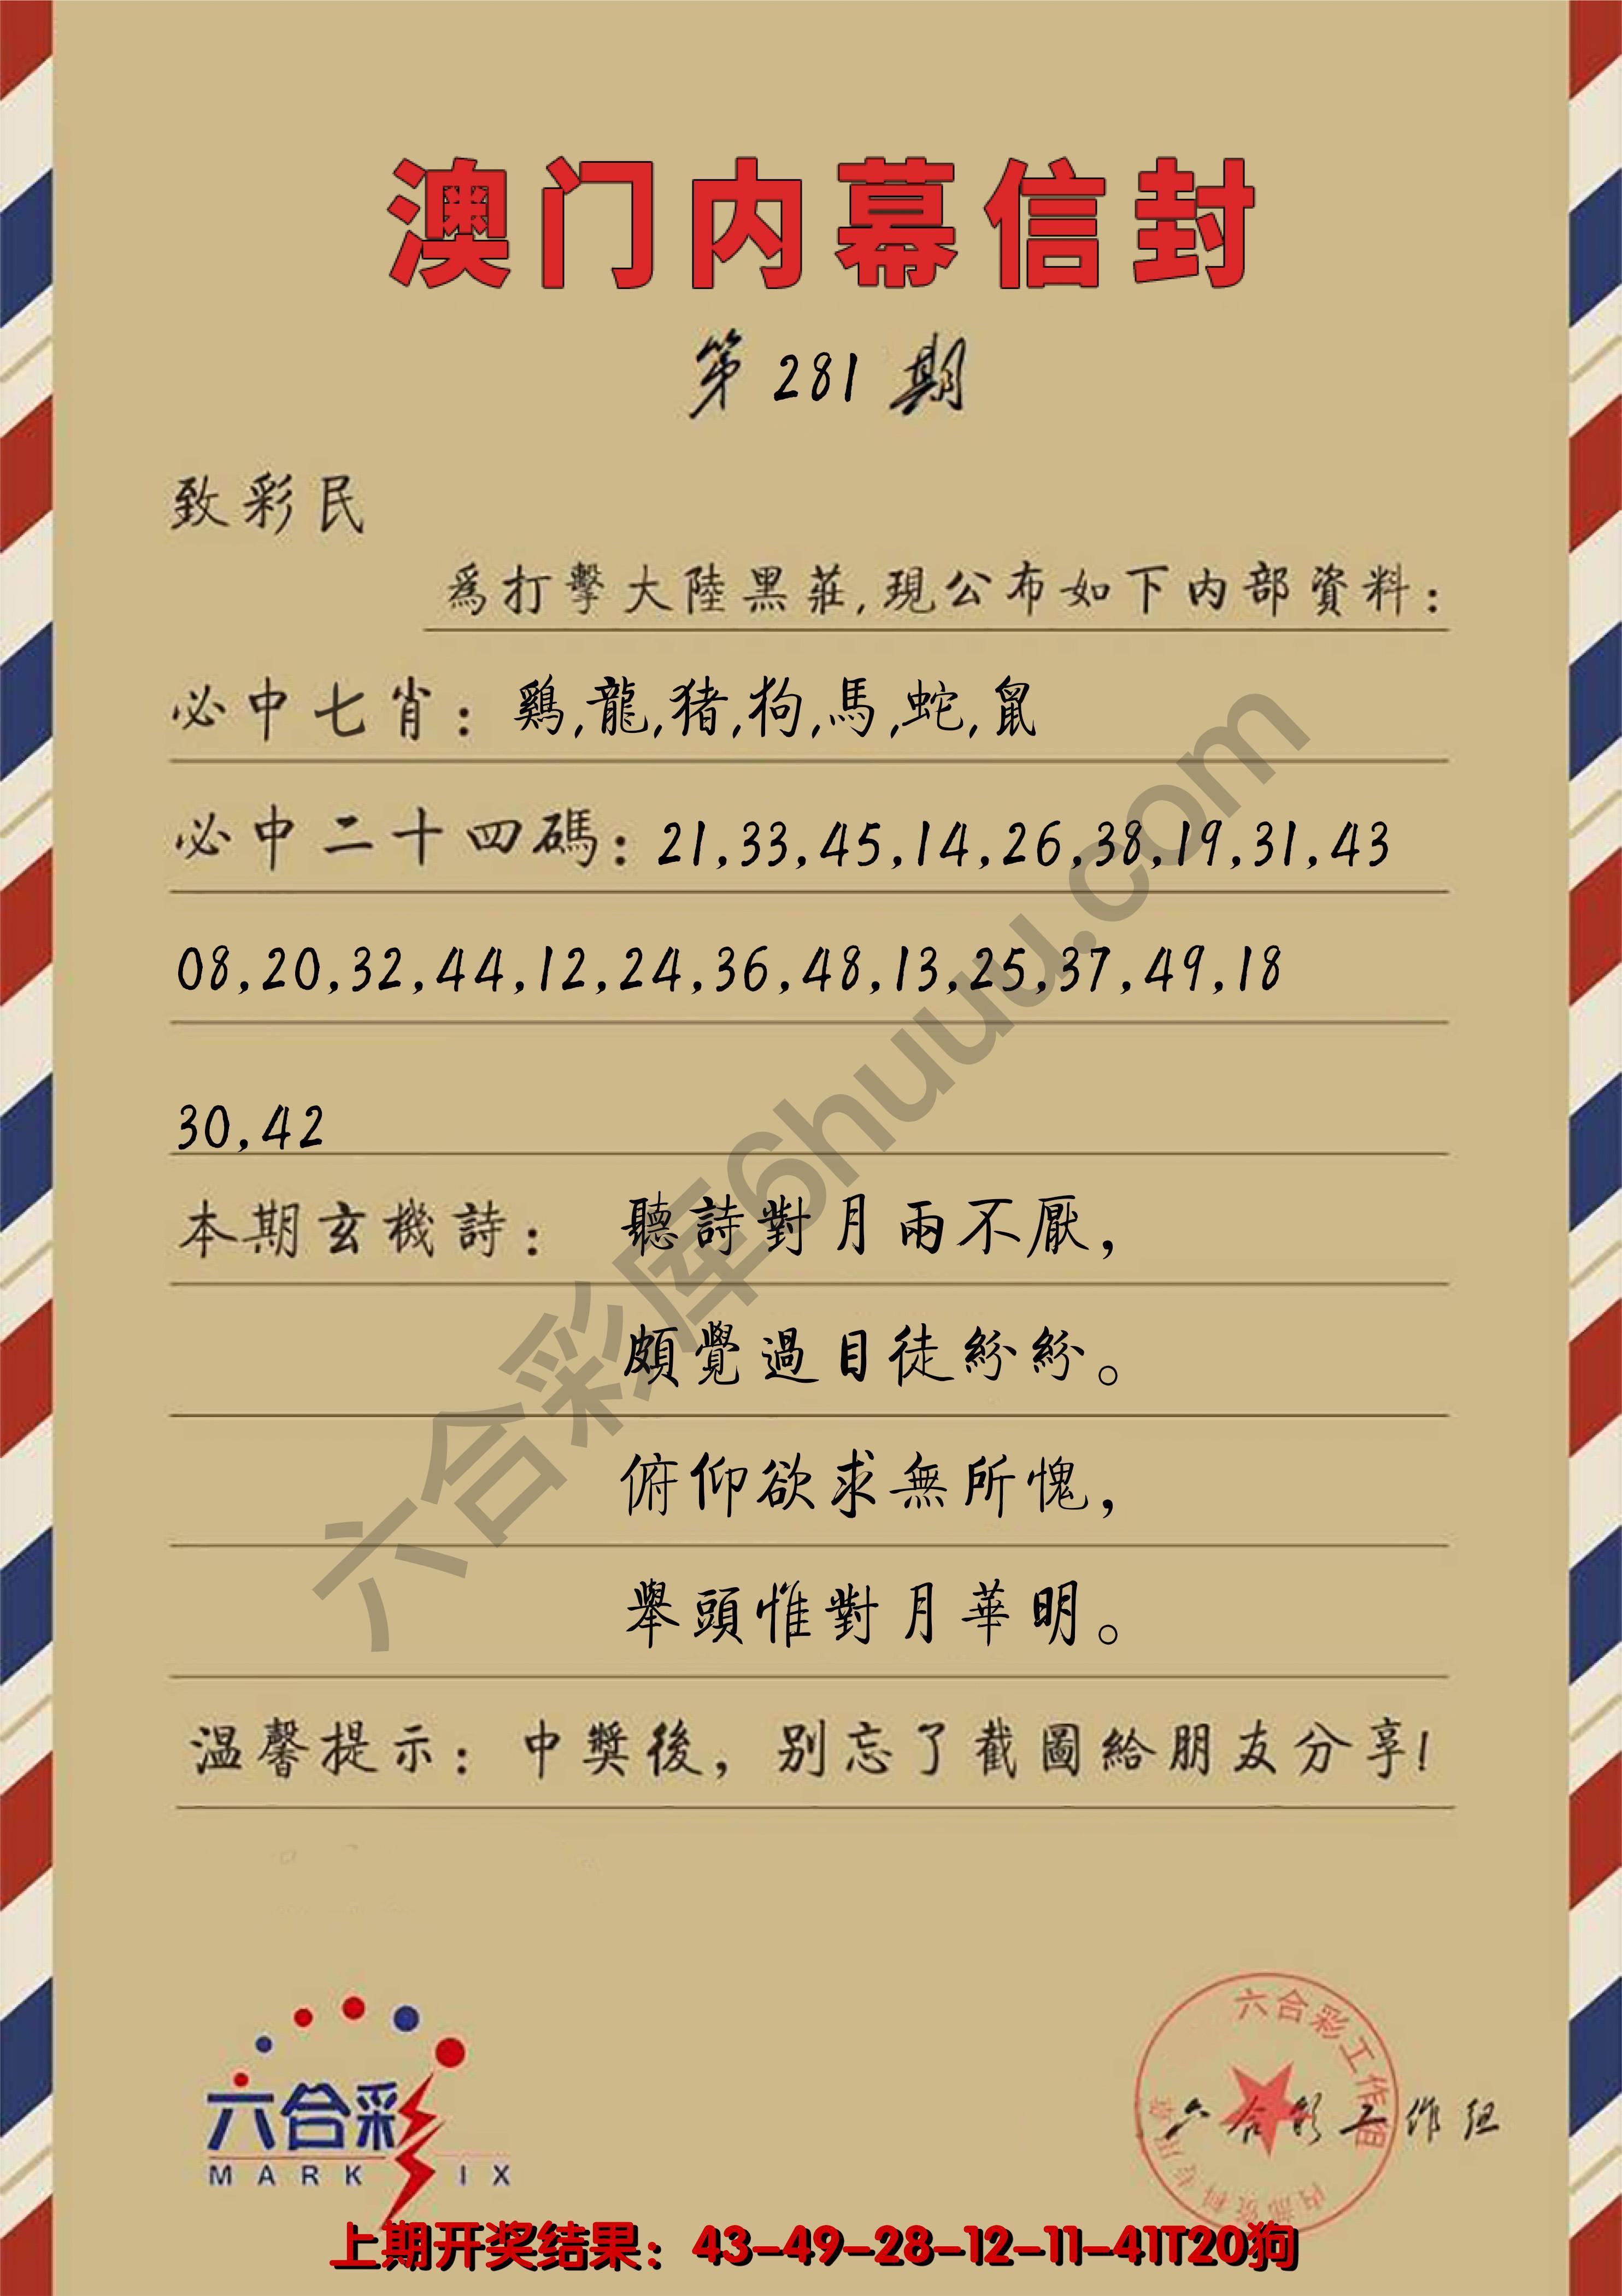 澳门内幕信封
第 281 期
致彩民
爲打擊大陸黑莊,現公布如下内部資料:
必中七肖: 鷄,龍,猪,狗,馬,蛇,鼠
必中二十四碼: 21,33,45,14,26,38,19,31,43
08,20,32,44,12,24,36,48,13,25,37,49,18
30,42
本期玄機詩: 聽詩對月兩不厭,
頗覺過目徒紛紛。
俯仰欲求無所愧,
舉頭惟對月華明。
温馨提示: 中獎後, 别忘了截圖給朋友分享!
六合彩库6huuu.com
六合彩
MARK IX
六合彩工作组
内部资料专用章
六合彩工作组
上期开奖结果: 43-49-28-12-11-41T20狗